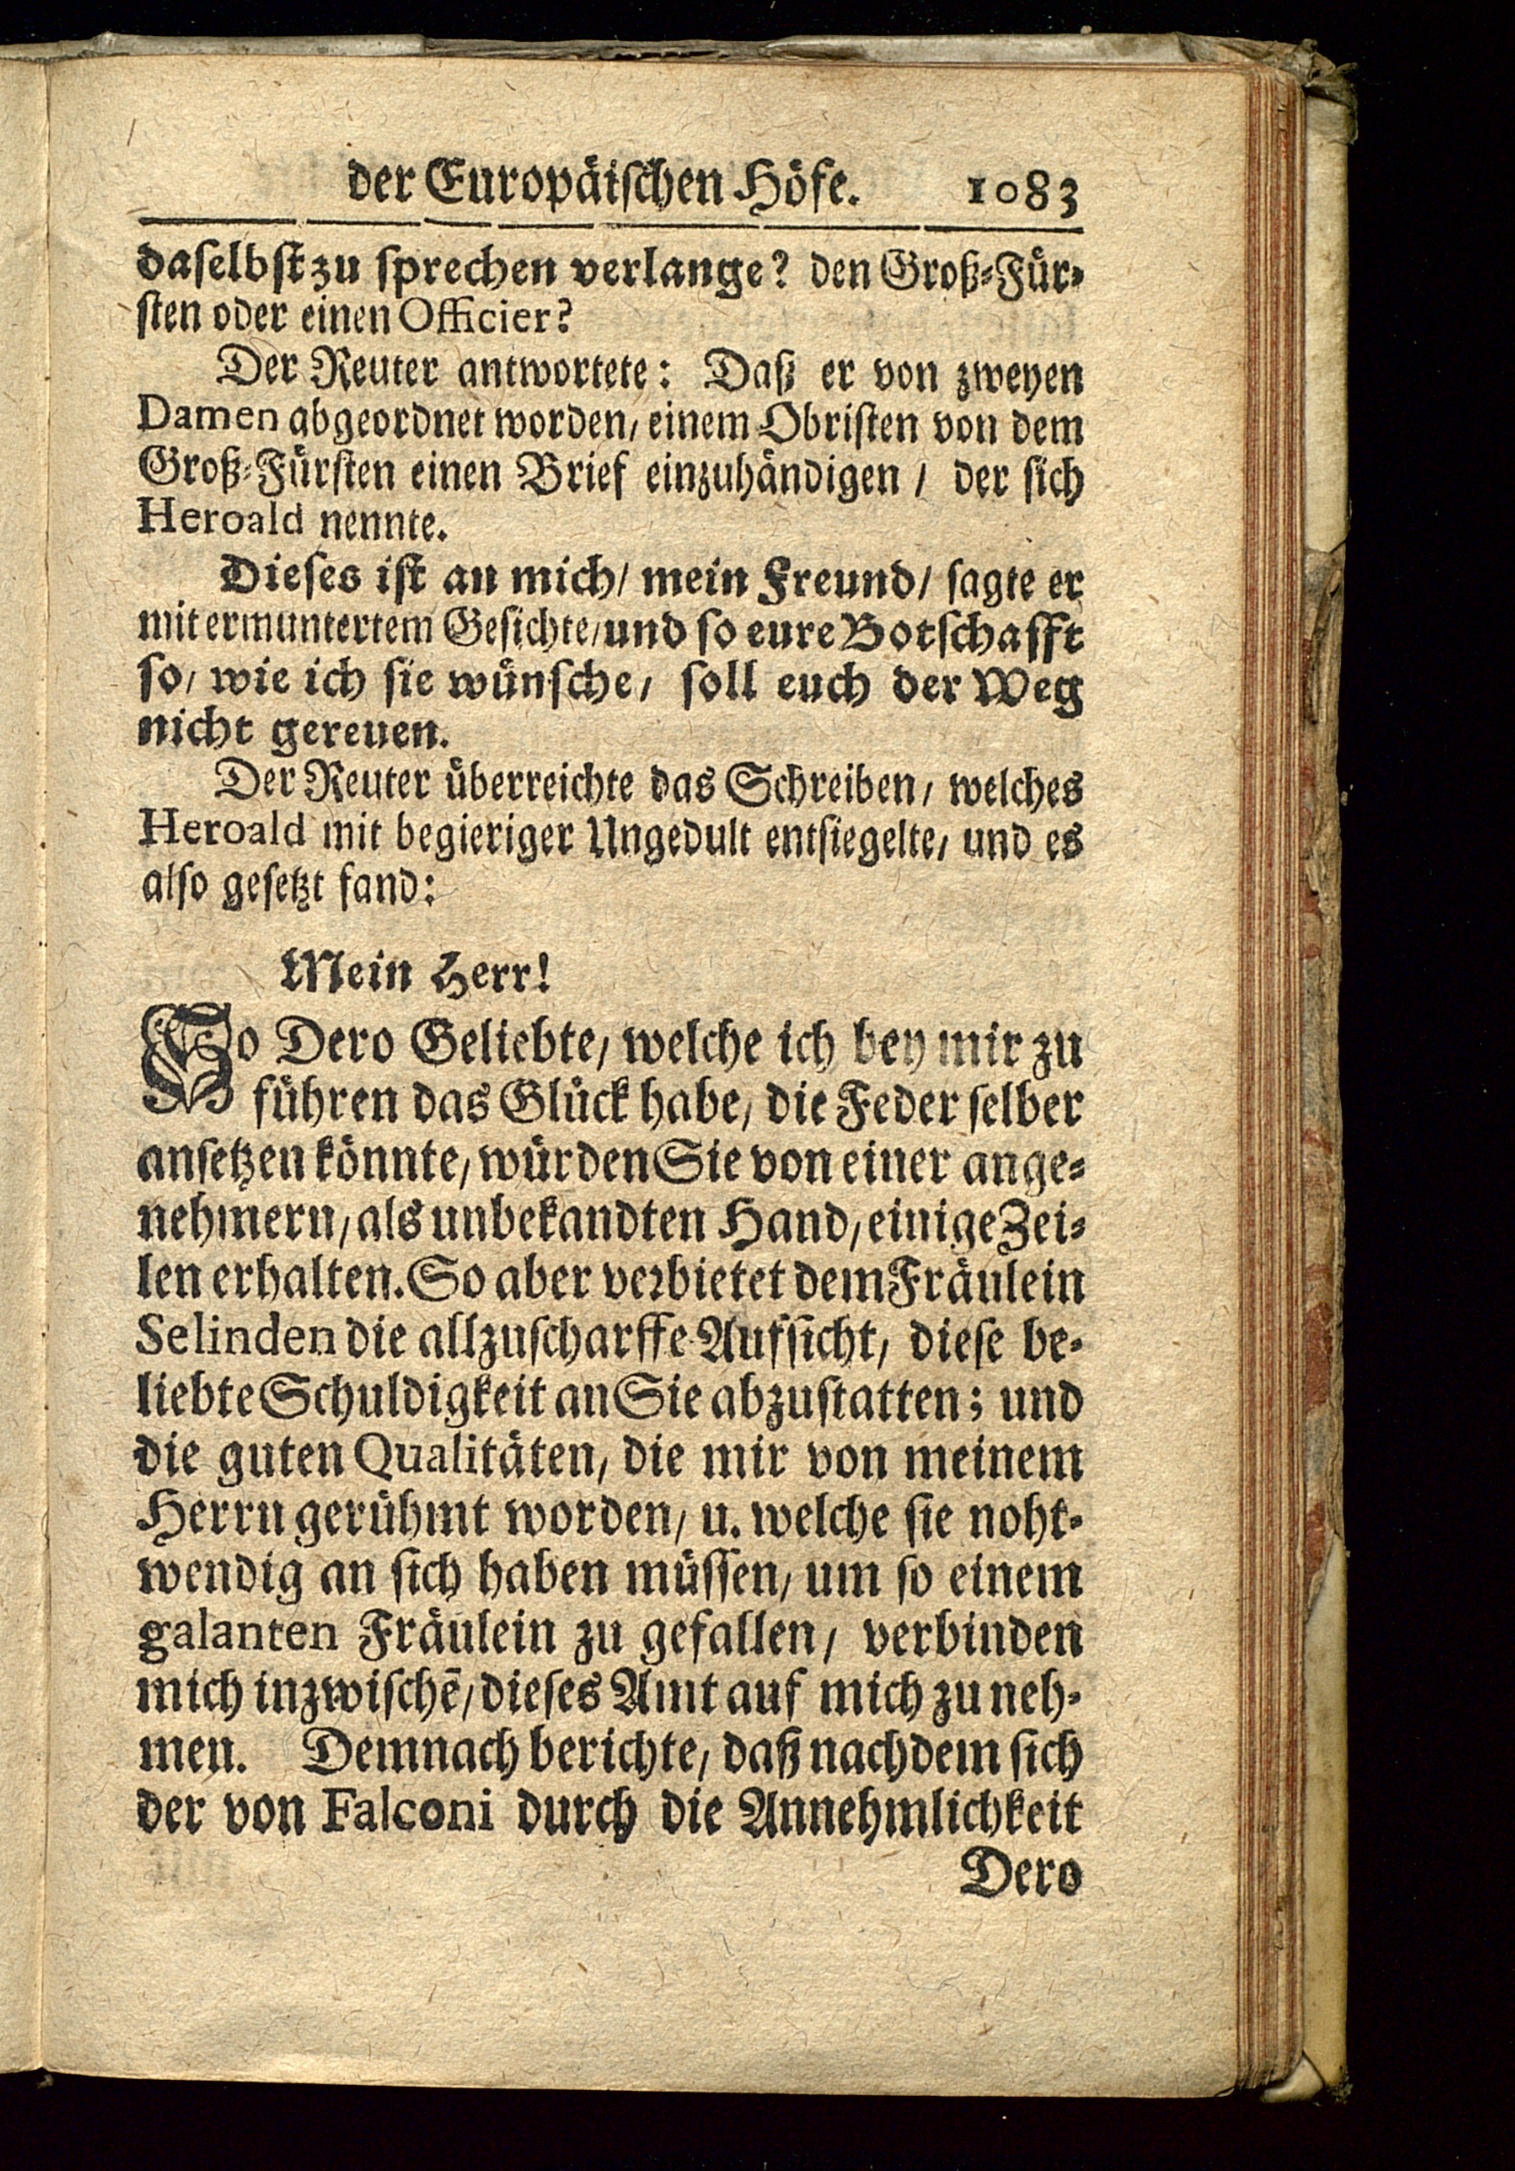 der Europäiſchen Höfe. 1083
daſelbſt zu ſprechen verlange? den Groß-Für-
ſten oder einen Officier?
Der Reuter antwortete: Daß er von zweyen
Damen abgeordnet worden/ einem Obriſten von dem
Groß-Fürſten einen Brief einzuhändigen / der ſich
Heroald nennte.
Dieſes iſt an mich/ mein Freund/ ſagte er
mit ermuntertem Geſichte/ und ſo eure Botſchafft
ſo/ wie ich ſie wünſche/ ſoll euch der Weg
nicht gereuen.
Der Reuter überreichte das Schreiben/ welches
Heroald mit begieriger Ungedult entſiegelte/ und es
alſo geſetzt fand:
Mein Herr!
So Dero Geliebte/ welche ich bey mir zu
führen das Glück habe/ die Feder ſelber
anſetzen könnte/ würden Sie von einer ange-
nehmern/ als unbekandten Hand/ einige Zei-
len erhalten. So aber verbietet dem Fräulein
Selinden die allzuſcharffe Aufſicht/ dieſe be-
liebte Schuldigkeit an Sie abzuſtatten; und
die guten Qualitäten/ die mir von meinem
Herrn gerühmt worden/ u. welche ſie noht-
wendig an ſich haben müſſen/ um ſo einem
galanten Fräulein zu gefallen/ verbinden
mich inzwiſchē/ dieſes Amt auf mich zu neh-
men. Demnach berichte/ daß nachdem ſich
der von Falconi durch die Annehmlichkeit
Dero